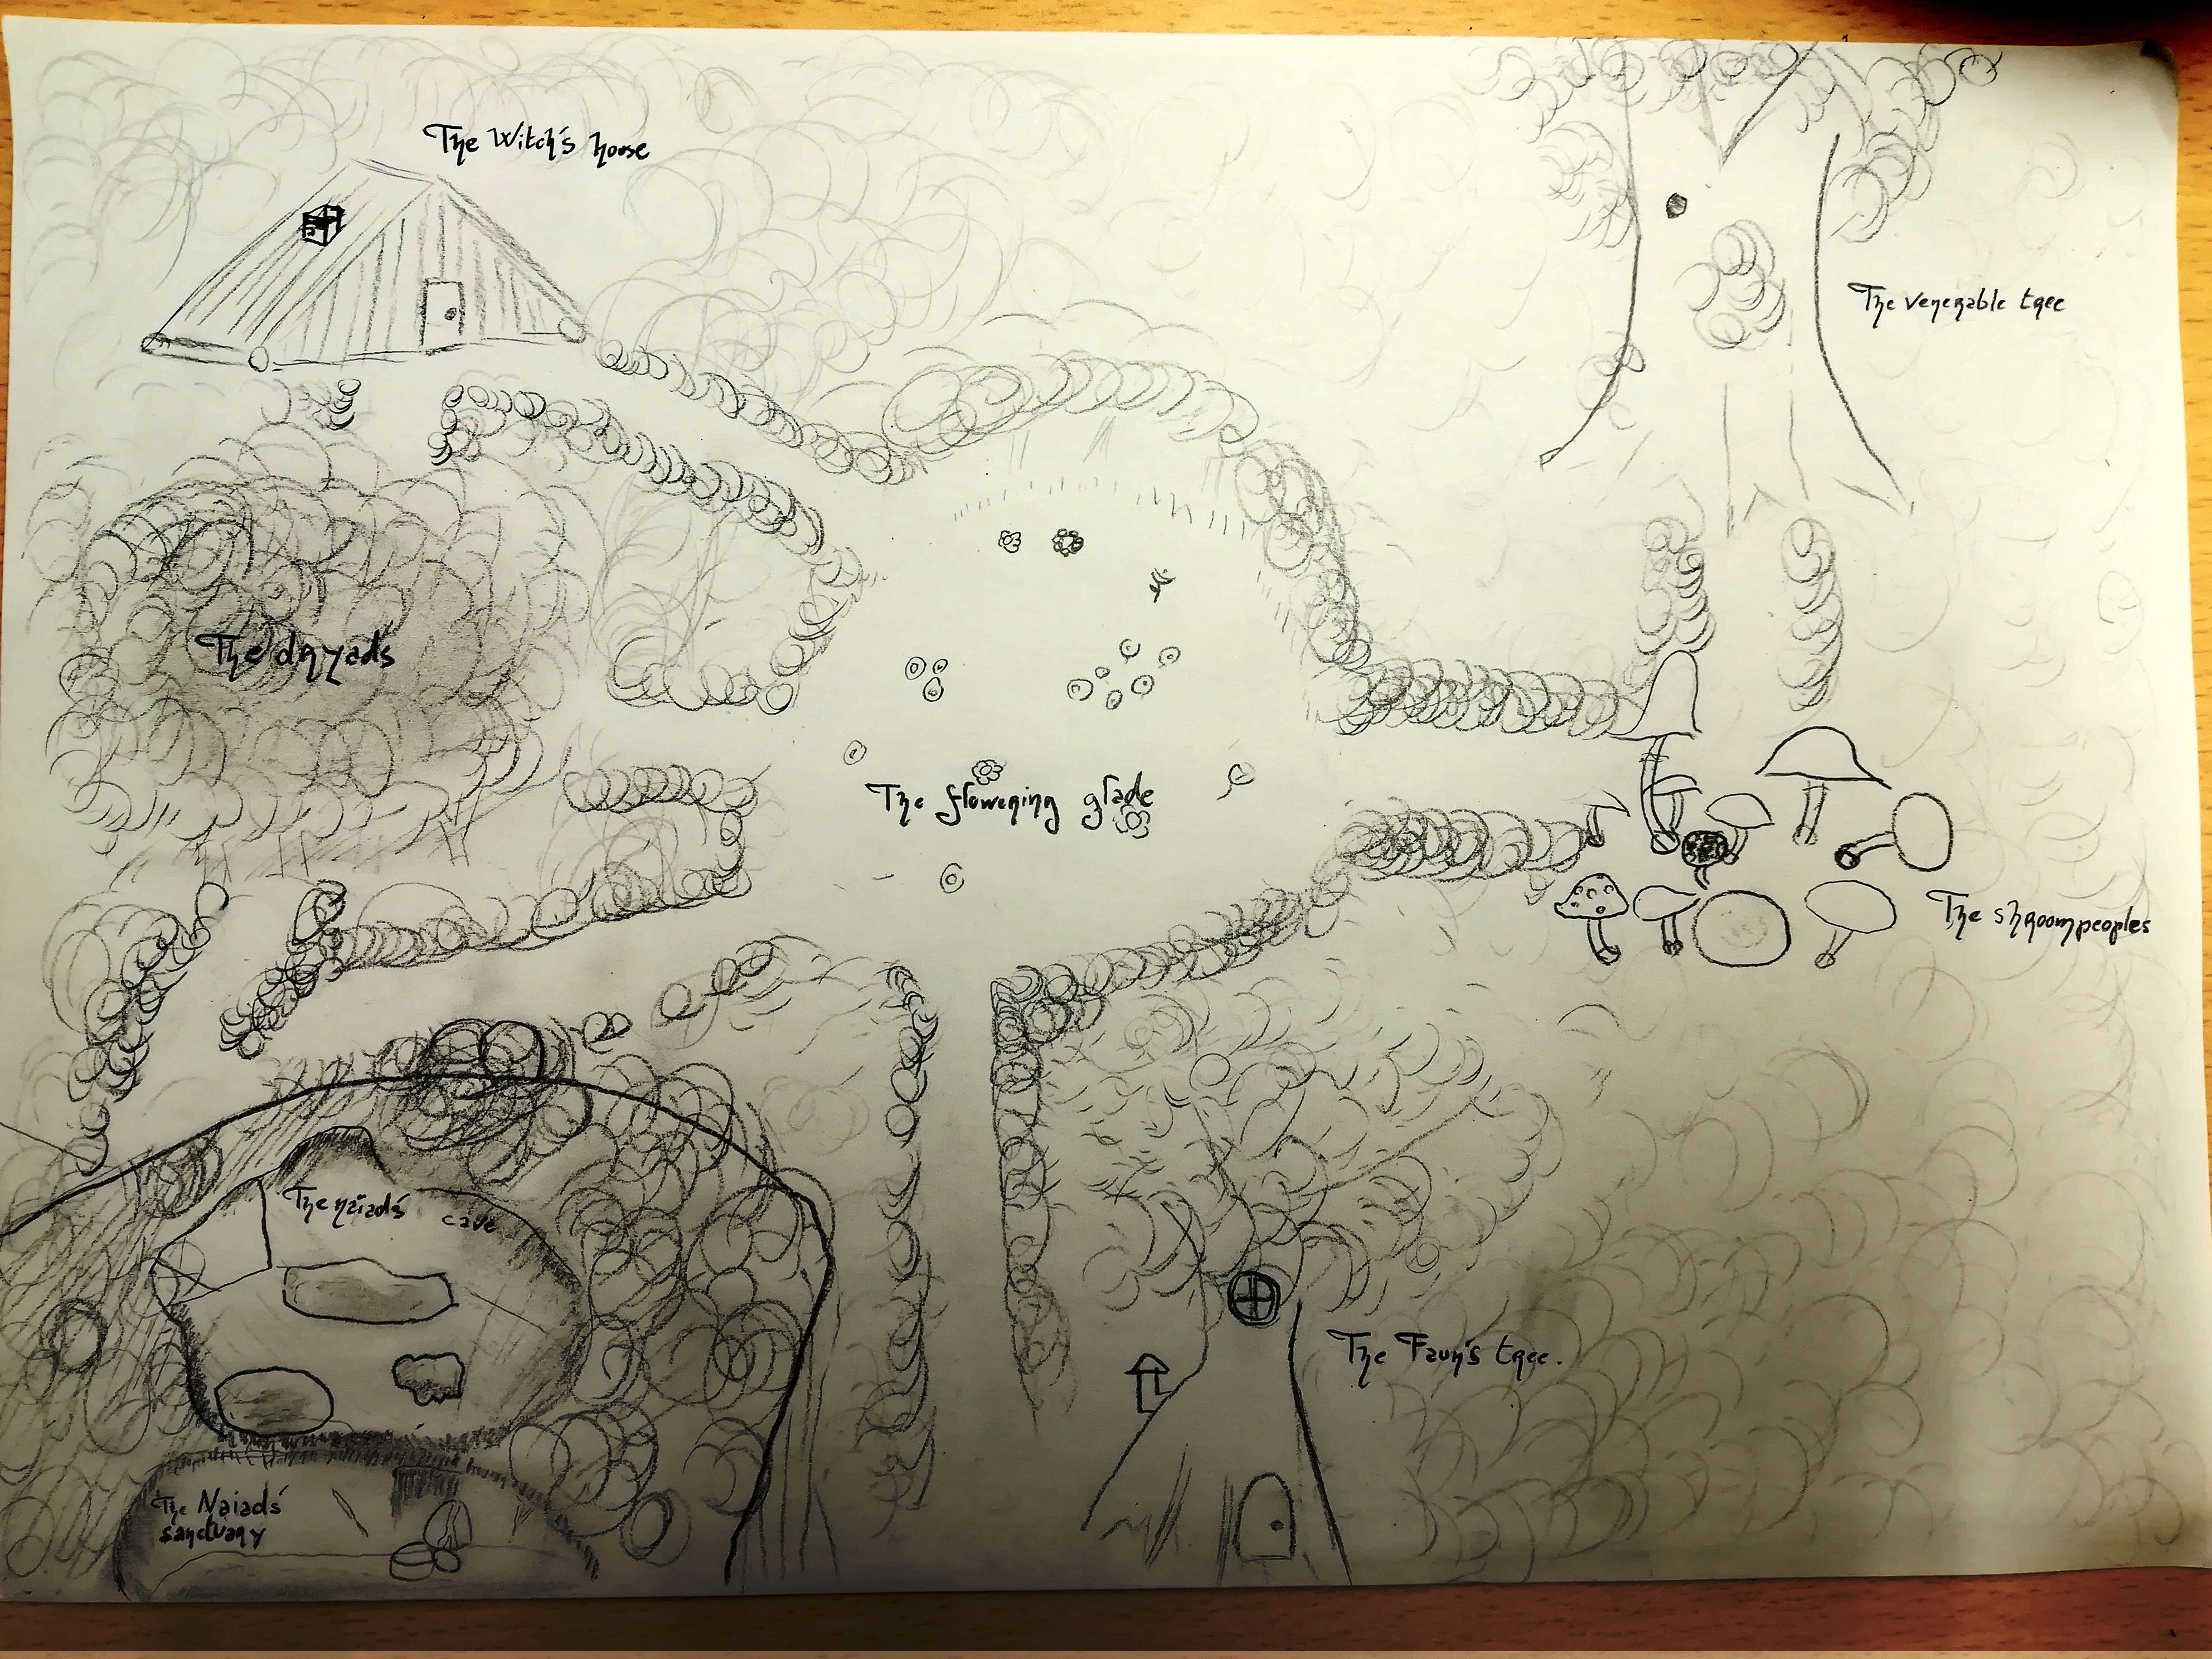 The Witch's house
The venerable tree
The dryads
The flowering glade
The shroompeoples
The naïads' cave
The Faun's tree.
The Naiads'
sanctuary